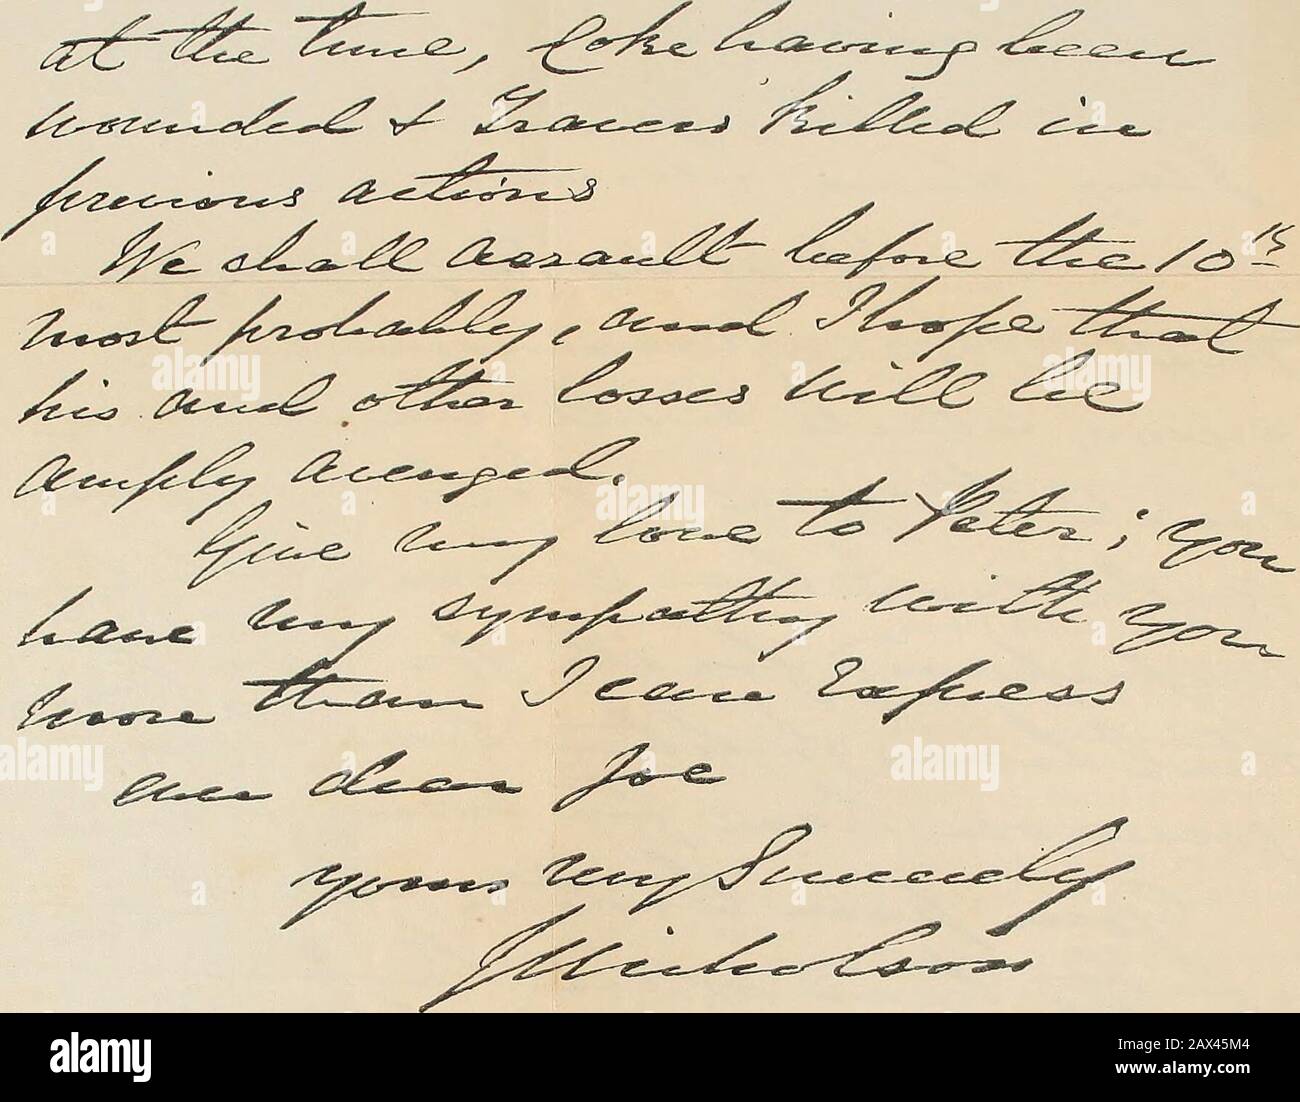 at the time, Coke having been
wounded & Travers killed in
previous actions
We shall assault before the 10th
most probably, and I hope that
his and other losses will be
amply avenged.
Give my love to Peter; you
have my sympathy with you
more than I can Express
dear Joe
yours very Sincerely
JNicholson
alamy
Image ID: 2AX45M4
www.alamy.com